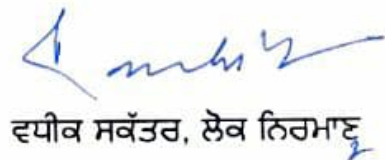 ਵਧੀਕ ਸਕੱਤਰ, ਲੋਕ ਨਿਰਮਾਣ